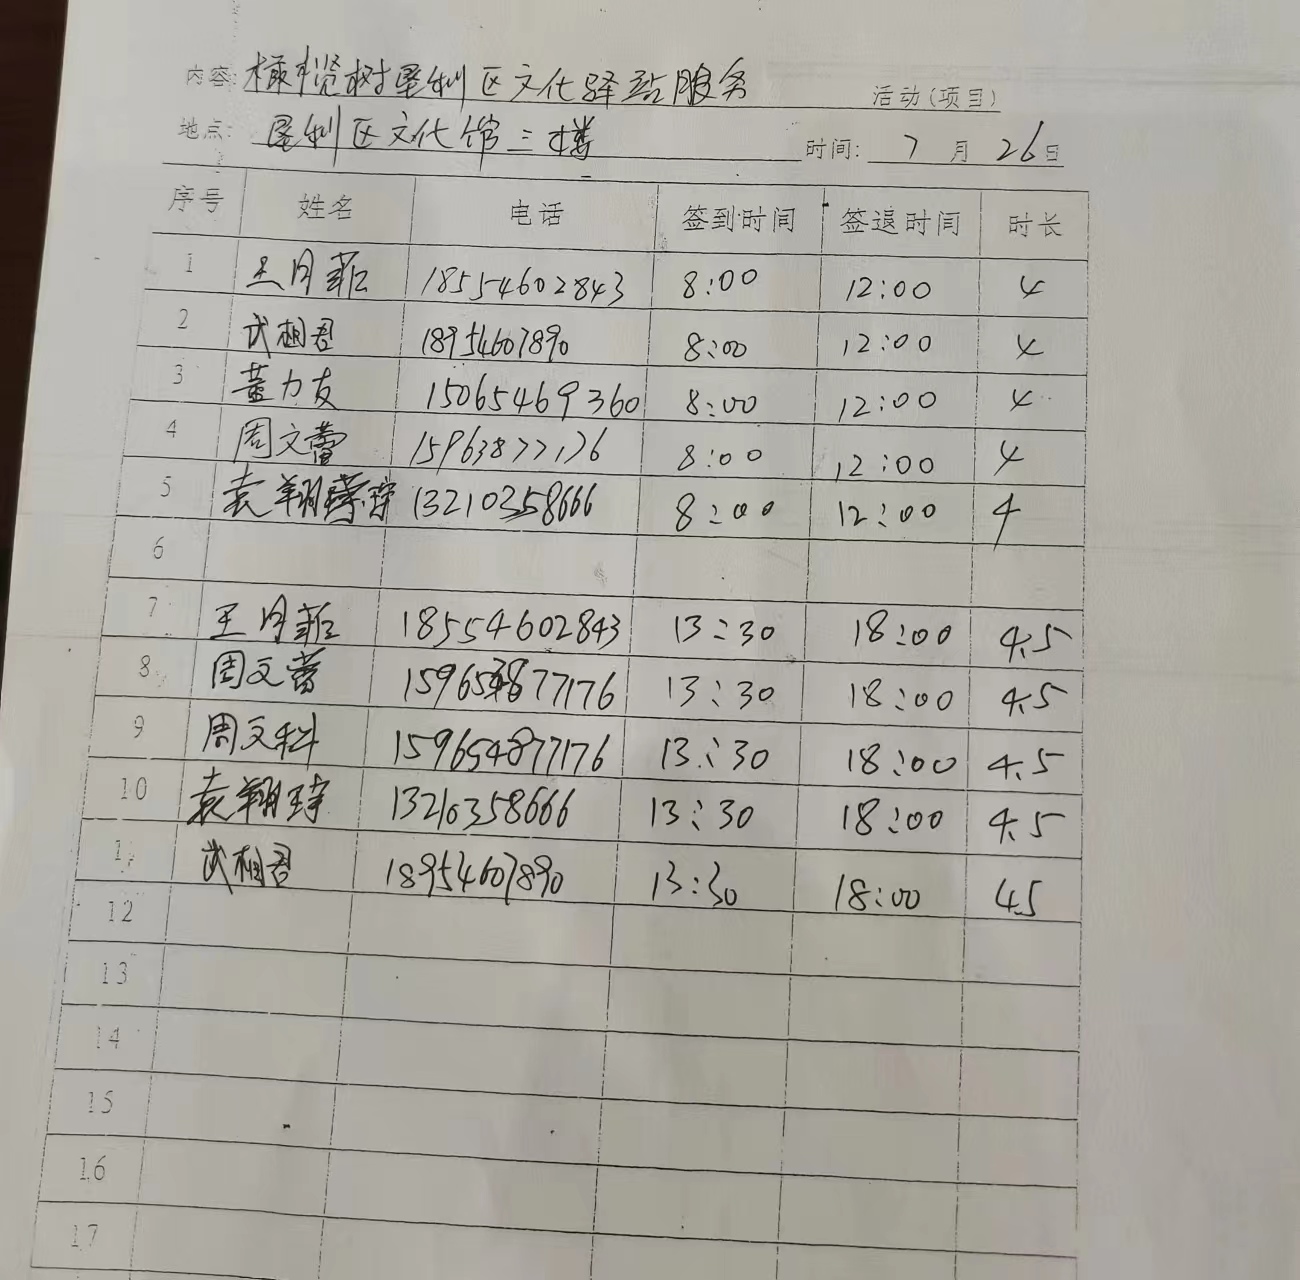 内容: 橄榄树垦利区文化驿站服务 活动(项目)
地点: 垦利区文化馆三楼 时间: 7月26日
序号 姓名 电话 签到时间 签退时间 时长
1 王月菲 18554602843 8:00 12:00 4
2 武相君 18954607890 8:00 12:00 4
3 董力友 15065469360 8:00 12:00 4
4 周文蕾 15963877176 8:00 12:00 4
5 袁翔 13210358666 8:00 12:00 4
6
7 王月菲 18554602843 13:30 18:00 4.5
8 周文蕾 13:30 18:00 4.5
9 周文科 159654877176 13:30 18:00 4.5
10 袁翔 13210358666 13:30 18:00 4.5
11 武相君 18954607890 13:30 18:00 4.5
12
13
14
15
16
17